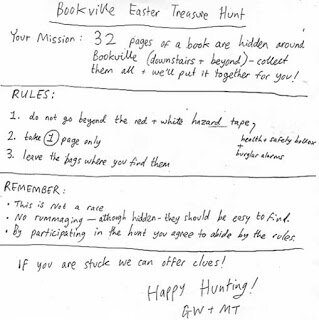 Bookville Easter Treasure Hunt
Your Mission: 32 pages of a book are hidden around
Bookville (downstairs + beyond) - collect
them all + we'll put it together for you!
RULES:
1. do not go beyond the red + white hazard tape
health + safety bollox
+
burglar alarms
2. take 1 page only
3. leave the bags where you find them
REMEMBER:
• This is Not a race
• No rummaging - although hidden - they should be easy to find.
• By participating in the hunt you agree to abide by the rules.
If you are stuck we can offer clues!
Happy Hunting!
GW + MT